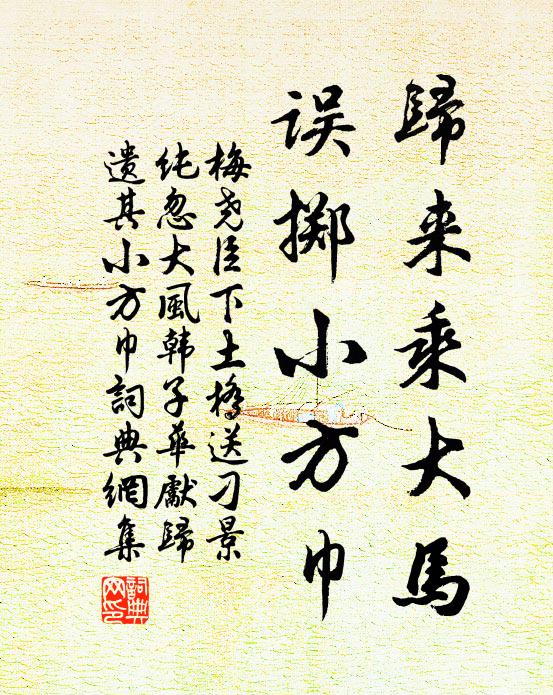 歸来乘大馬
误掷小方巾
梅尧臣下土橋送刁景
纯忽大風韓子華獻歸
遺其小方巾詞典網集
詞典网印